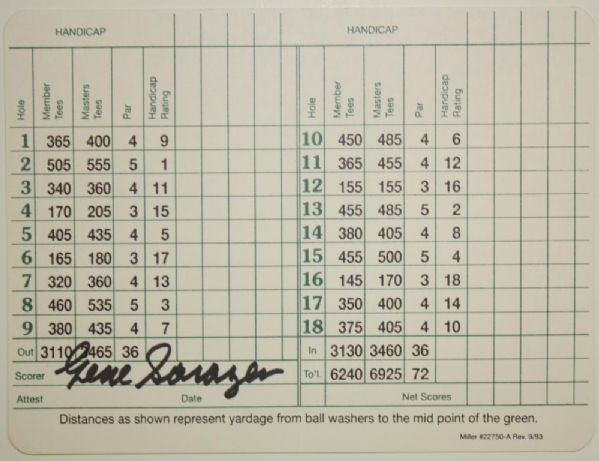 HANDICAP HANDICAP
Hole Member Tees Masters Tees Par Handicap Rating Hole Member Tees Masters Tees Par Handicap Rating
1 365 400 4 9 10 450 485 4 6
2 505 555 5 1 11 365 455 4 12
3 340 360 4 11 12 155 155 3 16
4 170 205 3 15 13 455 485 5 2
5 405 435 4 5 14 380 405 4 8
6 165 180 3 17 15 455 500 5 4
7 320 360 4 13 16 145 170 3 18
8 460 535 5 3 17 350 400 4 14
9 380 435 4 7 18 375 405 4 10
Out 3110 3465 36 In 3130 3460 36
Scorer Gene Sarazen To'l. 6240 6925 72
Attest Date Net Scores
Distances as shown represent yardage from ball washers to the mid point of the green.
Miller #22750-A Rev. 9/93